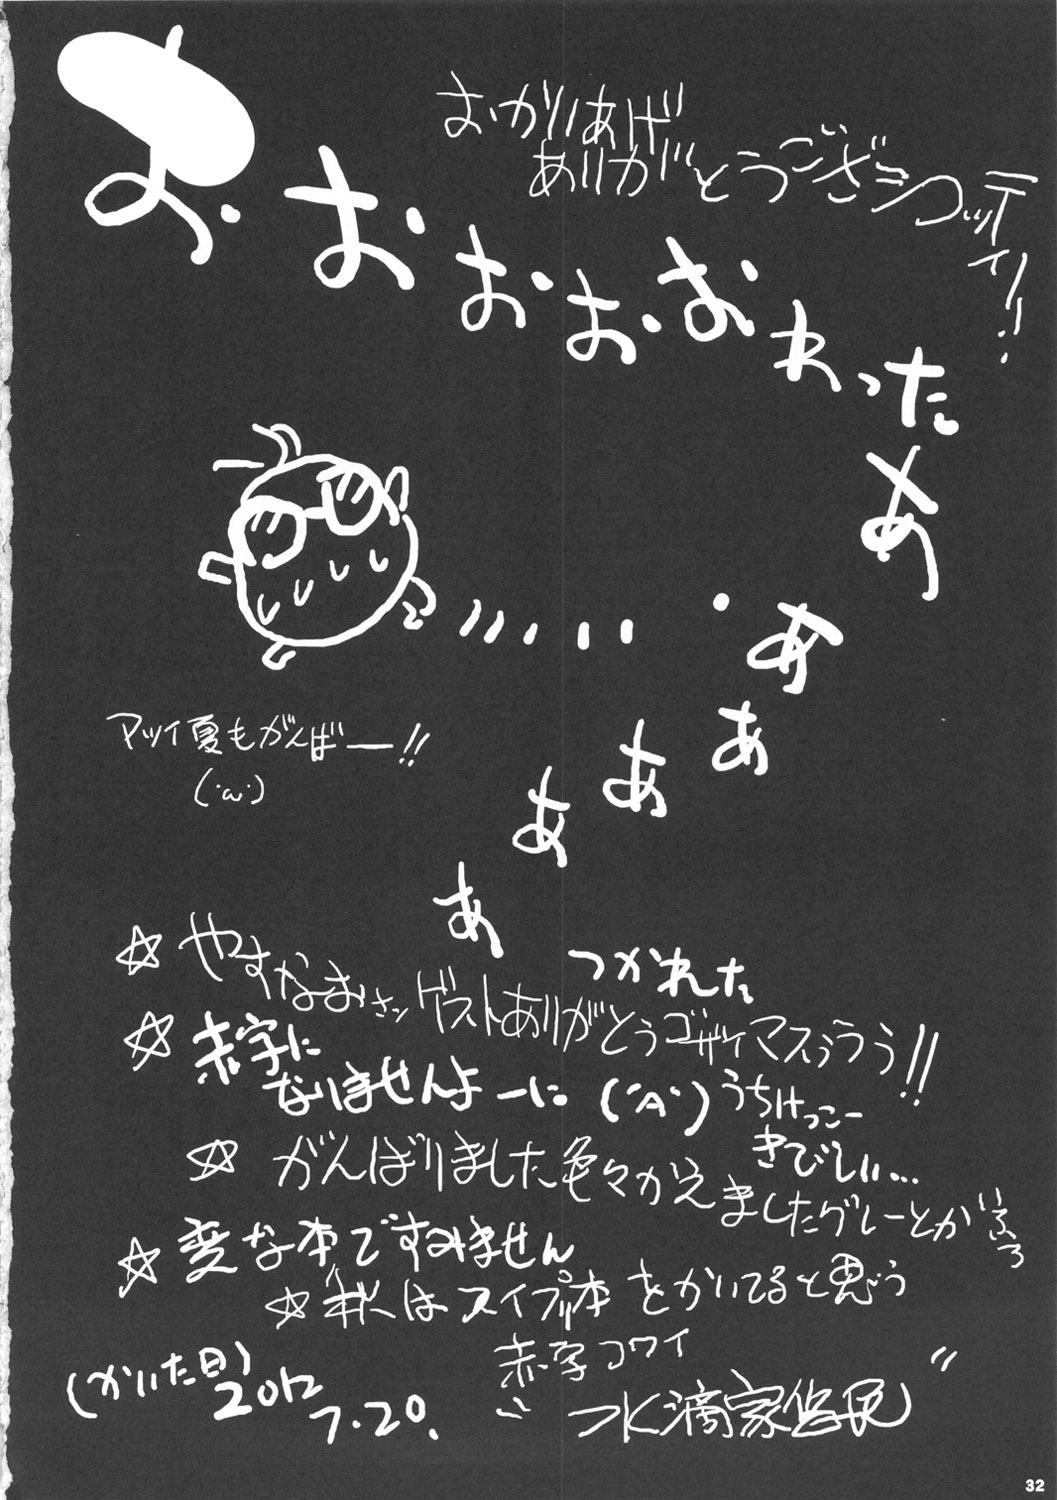 おかりあげ
ありがとうござシコッティ!!
おおおおおわったあああああああ
アツイ夏もがんばー!!
(・ω・)
つかれた
☆やすなおさンゲストありがとうゴザイマスぅううう!!
☆赤字に
なりませんよーに(´A`)うちけっこー
きびしい…
☆がんばりました色々かえましたグレーとか
☆変な本ですみません
☆私はスイプリ本をかいてると思う
赤字コワイ
(かいた日)
2012
7.20.
〝水滴家
32